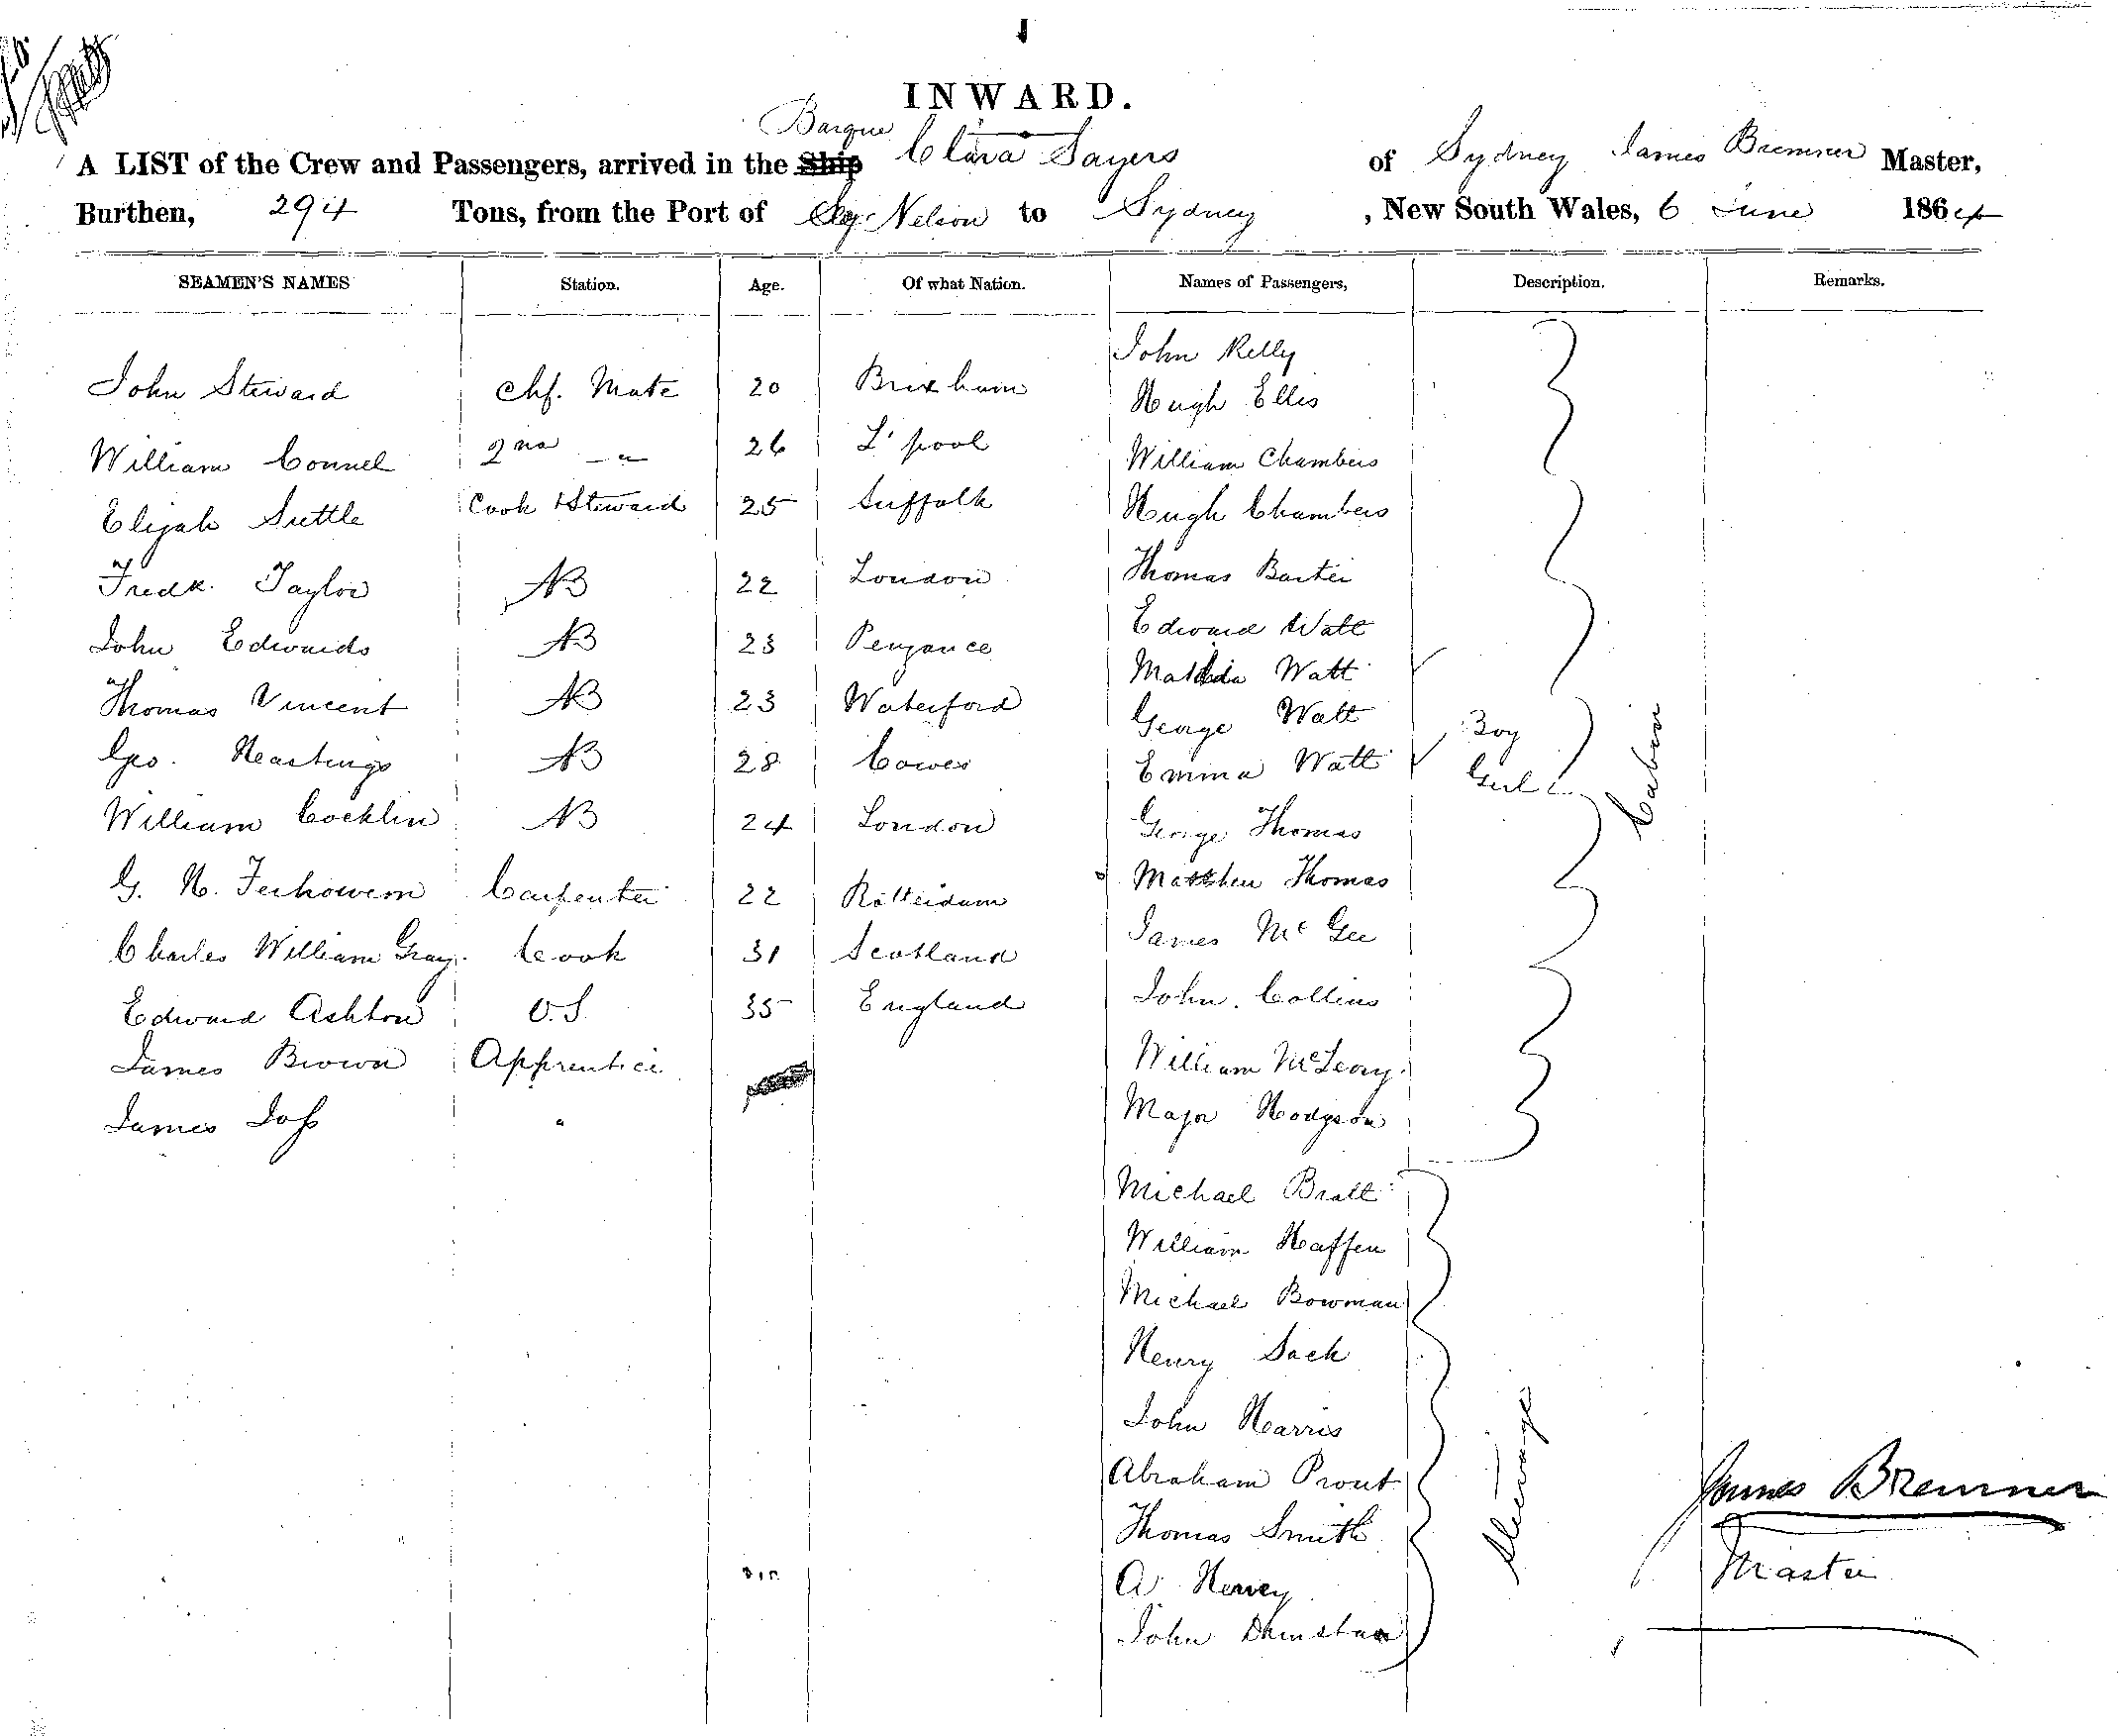 INWARD.
Barque
A LIST of the Crew and Passengers, arrived in the Ship Clara Sayers of Sydney James Bremner Master,
Burthen, 294 Tons, from the Port of Nelson to Sydney, New South Wales, 6 June 1864
SEAMEN'S NAMES Station. Age. Of what Nation. Names of Passengers, Description. Remarks.
John Kelly
John Steward Chf. Mate 20 Brixham Hugh Ellis
William Connel 2nd " 26 L'pool William Chambers
Elijah Suttle Cook & Steward 25 Suffolk Hugh Chambers
Fredk. Taylor AB 22 London Thomas Baxter
John Edwards AB 23 Penzance Edward Watt
Matilda Watt
Thomas Vincent AB 23 Waterford George Watt Boy
Geo. Heastings AB 28 Cowes Emma Watt Girl
Cabin
William Cocklin AB 24 London George Thomas
G. H. Carpenter 22 Rotterdam Matthew Thomas
Charles William Gray. Cook 31 Scotland James McGee
Edward Ashton O.S. 35 England John Collins
James Brown Apprentice William
James Joss " Major Hodgson
Michael Bratt
William Haffen
Michael Bowman
Henry Sach
John Harris
Abraham Prout
Thomas Smith
A. Hervey
John
Steerage
James Bremner
Master